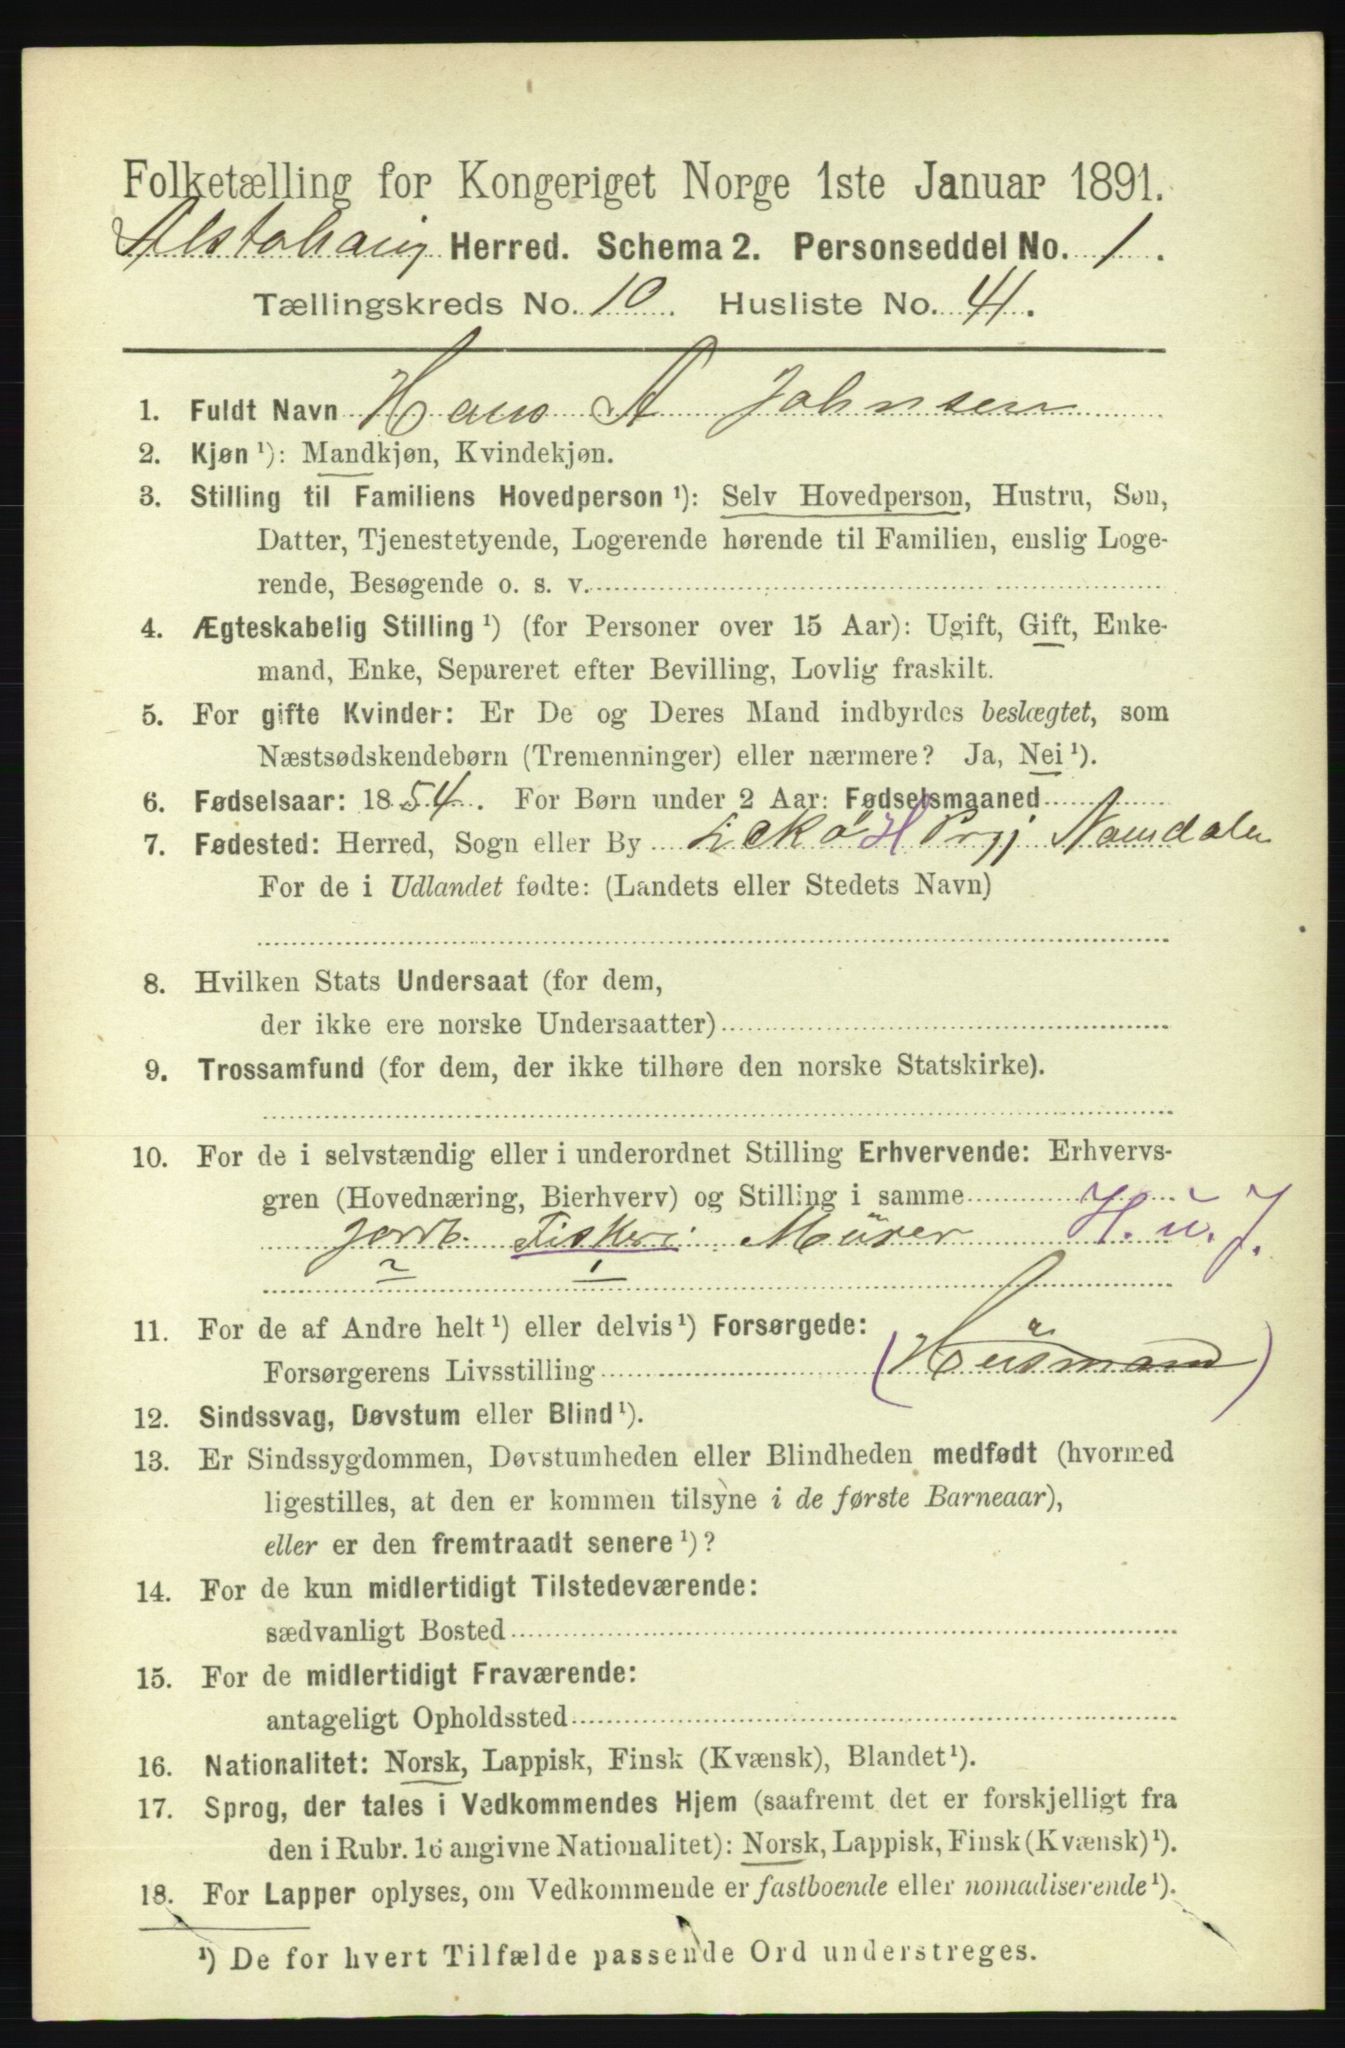 Folketælling for Kongeriget Norge 1ste Januar 1891.
Alstahaug Herred. Schema 2. Personseddel No. 1.
Tællingskreds No. 10. Husliste No. 41.
1. Fuldt Navn Hans A Johnsen
2. Kjøn ¹): Mandkjøn, Kvindekjøn.
3. Stilling til Familiens Hovedperson ¹): Selv Hovedperson, Hustru, Søn,
Datter, Tjenestetyende, Logerende hørende til Familien, enslig Loge-
rende, Besøgende o. s. v.
4. Ægteskabelig Stilling ¹) (for Personer over 15 Aar): Ugift, Gift, Enke-
mand, Enke, Separeret efter Bevilling, Lovlig fraskilt.
5. For gifte Kvinder: Er De og Deres Mand indbyrdes beslægtet, som
Næstsødskendebørn (Tremenninger) eller nærmere? Ja, Nei ¹).
6. Fødselsaar: 1854. For Børn under 2 Aar: Fødselsmaaned
7. Fødested: Herred, Sogn eller By Lekø H Prgj Namdalen
For de i Udlandet fødte: (Landets eller Stedets Navn)
8. Hvilken Stats Undersaat (for dem,
der ikke ere norske Undersaatter)
9. Trossamfund (for dem, der ikke tilhøre den norske Statskirke).
10. For de i selvstændig eller i underordnet Stilling Erhvervende: Erhvervs-
gren (Hovednæring, Bierhverv) og Stilling i samme
Jordb. Fiskeri Mürer H. u. J.
2 1
11. For de af Andre helt ¹) eller delvis ¹) Forsørgede:
Forsørgerens Livsstilling (Husmand)
12. Sindssvag, Døvstum eller Blind ¹).
13. Er Sindssygdommen, Døvstumheden eller Blindheden medfødt (hvormed
ligestilles, at den er kommen tilsyne i de første Barneaar),
eller er den fremtraadt senere ¹)?
14. For de kun midlertidigt Tilstedeværende:
sædvanligt Bosted
15. For de midlertidigt Fraværende:
antageligt Opholdssted
16. Nationalitet: Norsk, Lappisk, Finsk (Kvænsk), Blandet ¹).
17. Sprog, der tales i Vedkommendes Hjem (saafremt det er forskjelligt fra
den i Rubr. 16 angivne Nationalitet): Norsk, Lappisk, Finsk (Kvænsk) ¹).
18. For Lapper oplyses, om Vedkommende er fastboende eller nomadiserende ¹).
¹) De for hvert Tilfælde passende Ord understreges.